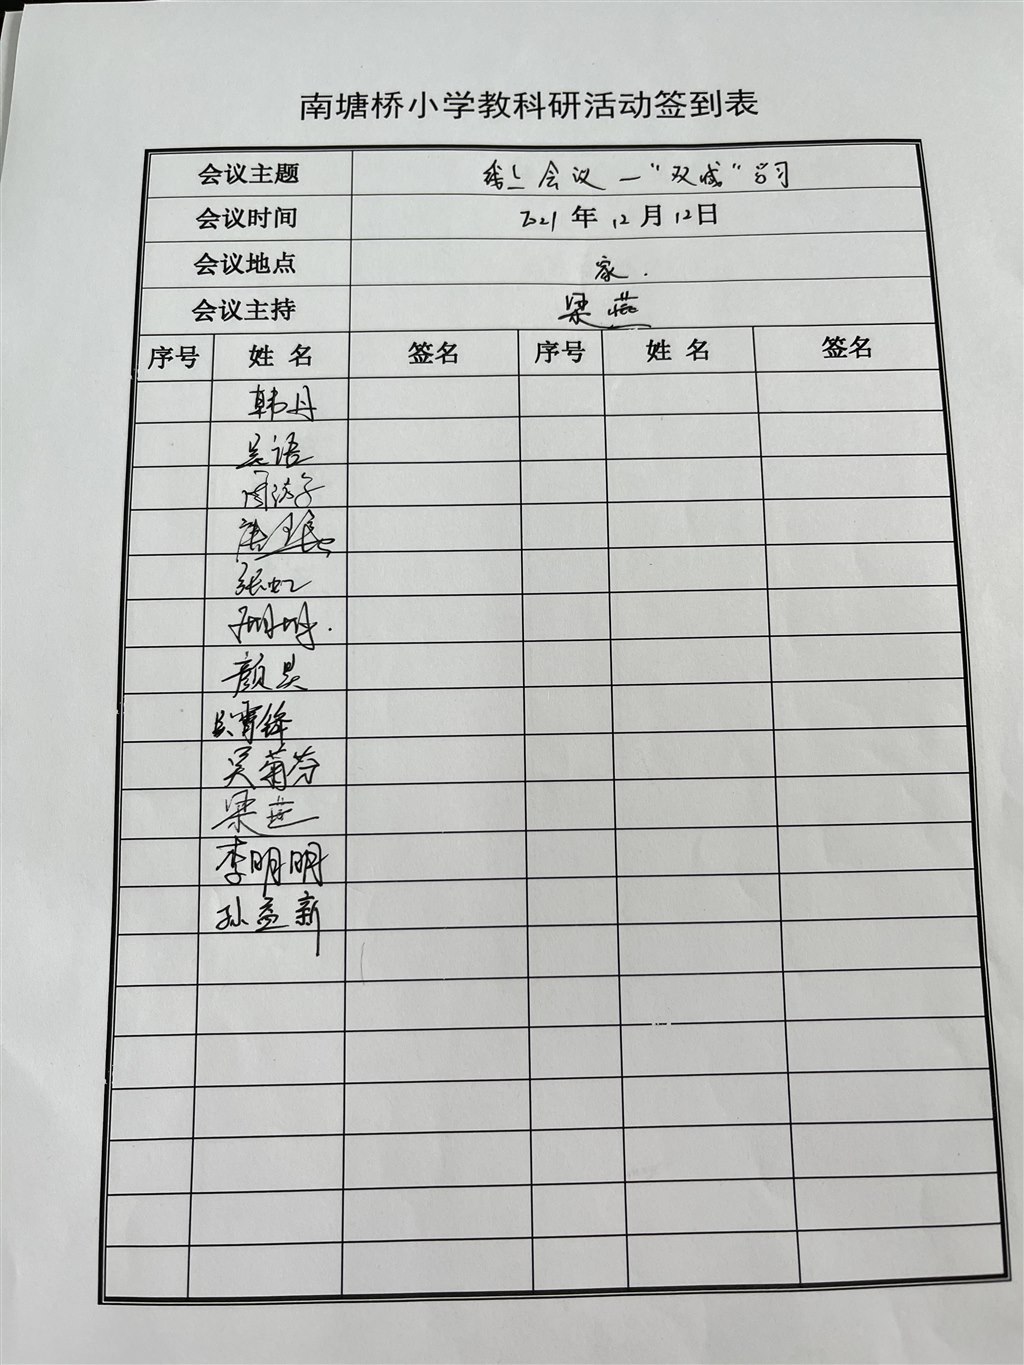 南塘桥小学教科研活动签到表
会议主题 线上会议—“双减”学习
会议时间 2021年12月12日
会议地点 家.
会议主持 梁燕
序号 姓名 签名 序号 姓名 签名
韩丹
吴语
张虹
颜昊
吴菊芬
梁燕
李明明
孙益新